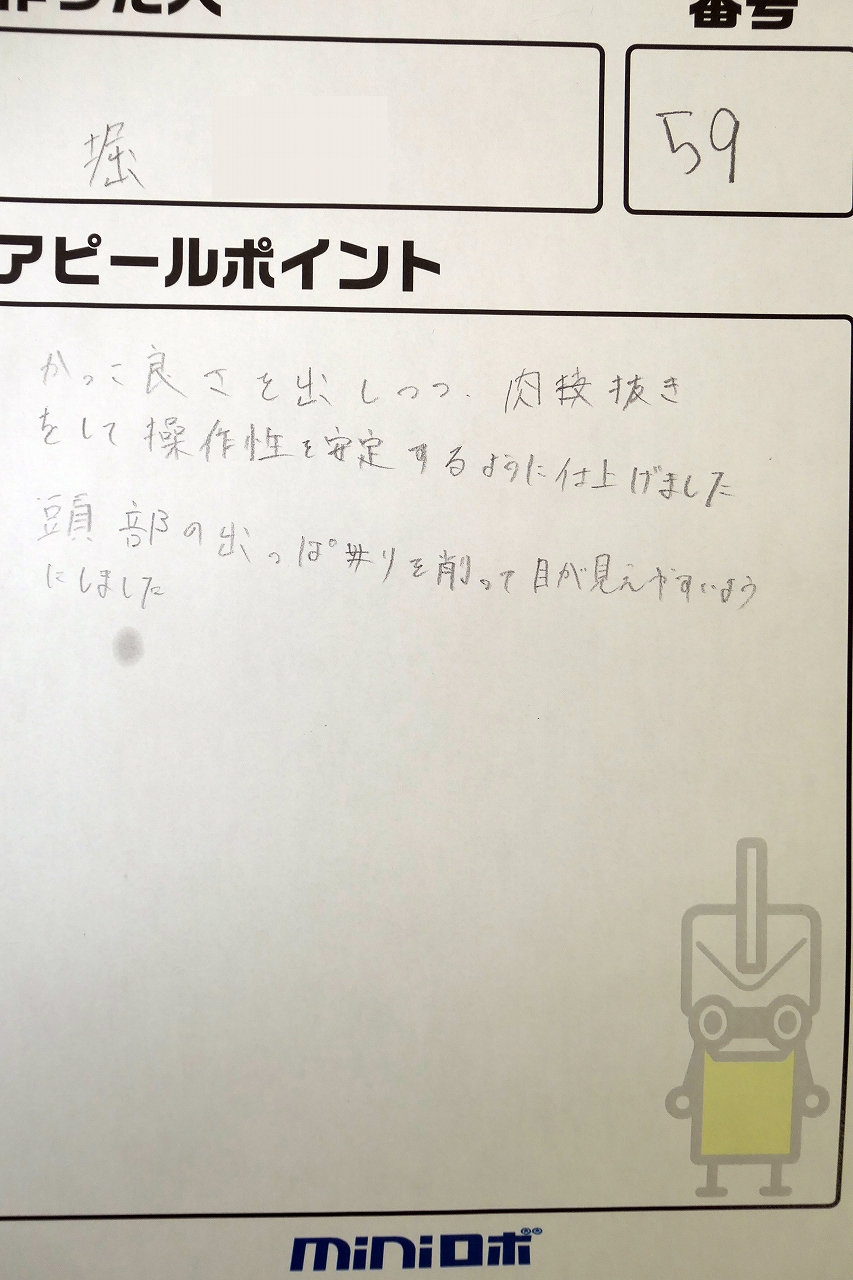 作った人
番号
堀
59
アピールポイント
かっこ良さを出しつつ、肉抜き
をして操作性を安定するように仕上げました
頭部の出っぱりを削って目が見えやすいよう
にしました
miniロボ